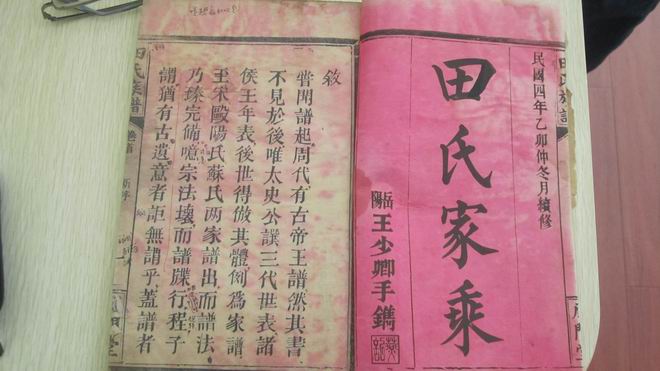 民國四年乙卯仲冬月續修
田氏家乘
岳陽王少卿手鐫
敘
嘗聞譜起周代有古帝王譜然其書
不見於後唯太史公譔三代世表諸
侯王年表後世得倣其體例爲家譜
至宋歐陽氏蘇氏两家譜出而譜法
乃臻完備噫宗法壞而譜牒行程子
謂猶有古遺意者詎無謂乎蓋譜者
田氏族譜
卷首
新序